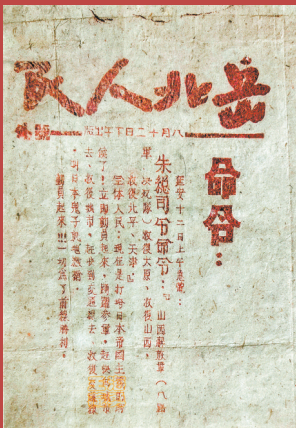 岳北人民
八月十二日下午出版
號外
命令：
延安十二日上午急電：
朱總司令命令：山西解放軍（八路
軍 決死隊）收復太原、收復山西，
收復北平、天津。
全体人民：現在是打垮日本帝國主義的時
候了！立即動員起來，踴躍參軍，趕快到城市
去，收復城市，交通線去，收復交通線
叫日本鬼子
動員起來!!!一切為了前線勝利。